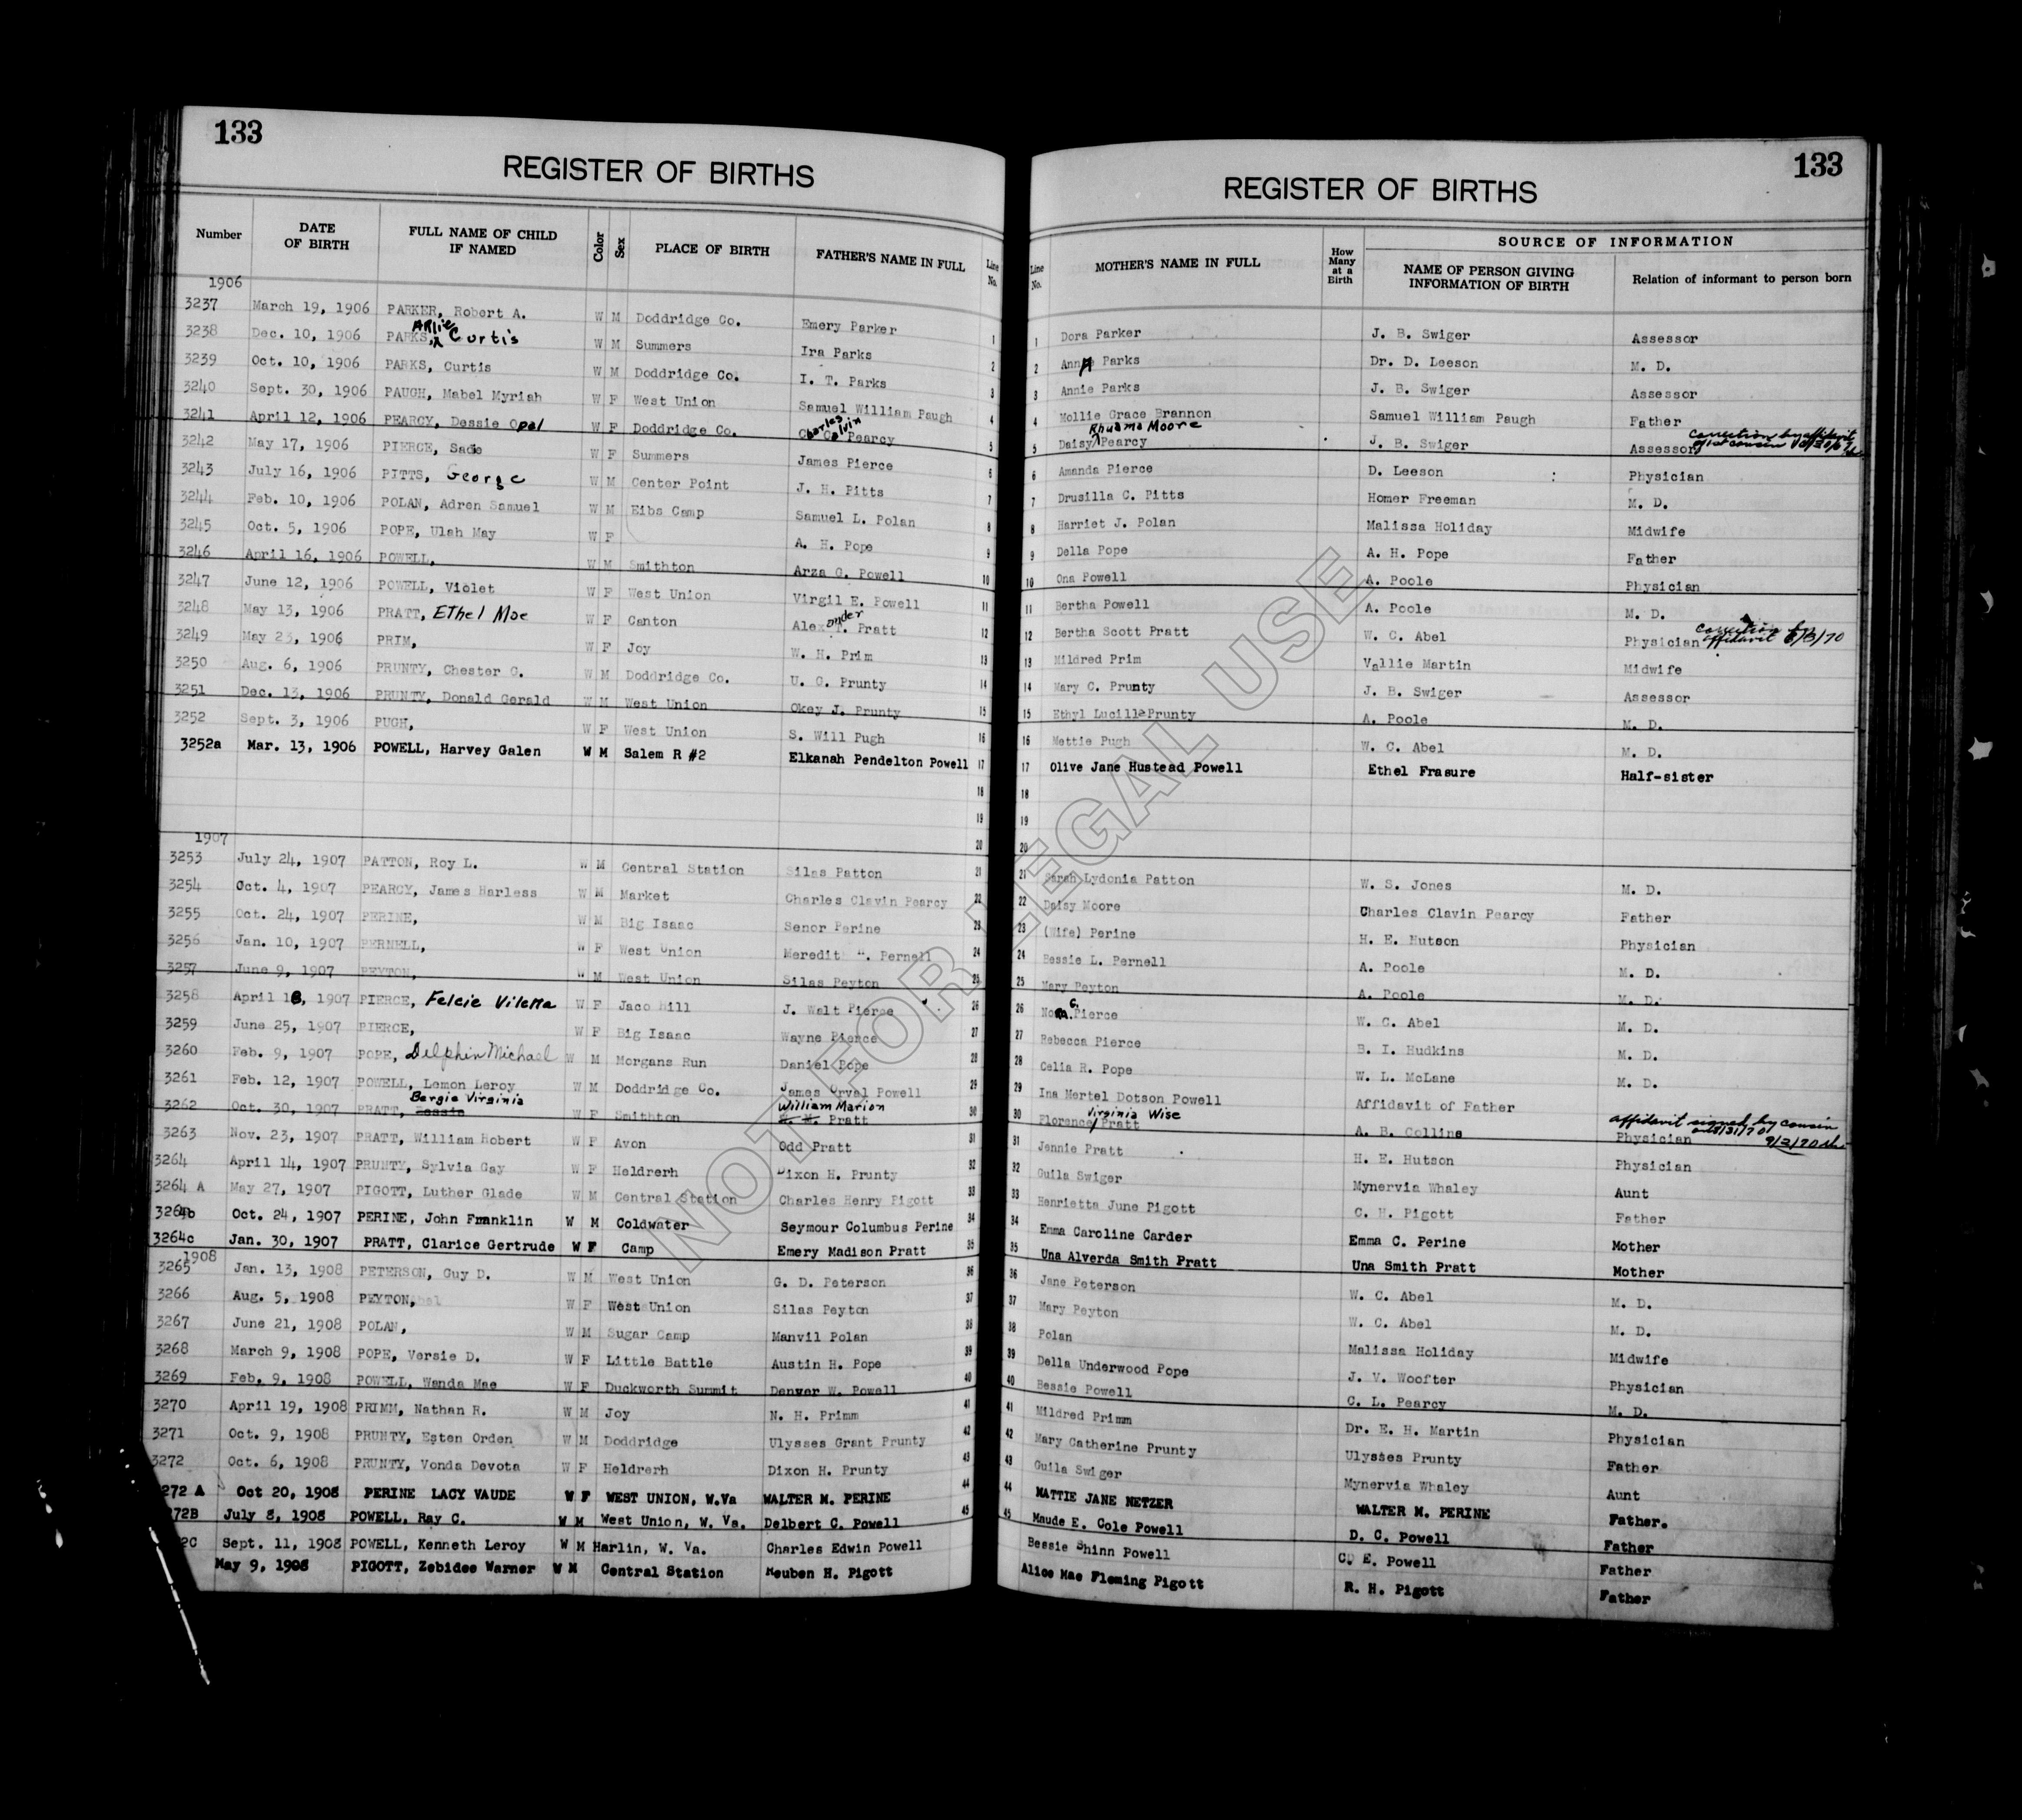 133
REGISTER OF BIRTHS
Number
DATE OF BIRTH
FULL NAME OF CHILD IF NAMED
Color
Sex
PLACE OF BIRTH
FATHER'S NAME IN FULL
Line No.
1906
3237 March 19, 1906 PARKER, Robert A. W M Doddridge Co. Emery Parker 1
3238 Dec. 10, 1906 PARKS, ARlie Curtis W M Summers Ira Parks 2
3239 Oct. 10, 1906 PARKS, Curtis W M Doddridge Co. I. T. Parks 3
3240 Sept. 30, 1906 PAUGH, Mabel Myriah W F West Union Samuel William Paugh 4
3241 April 12, 1906 PEARCY, Dessie Opal W F Doddridge Co. Charles Calvin Pearcy 5
3242 May 17, 1906 PIERCE, Sadie W F Summers James Pierce 6
3243 July 16, 1906 PITTS, George W M Center Point J. H. Pitts 7
3244 Feb. 10, 1906 POLAN, Adren Samuel W M Eibs Camp Samuel L. Polan 8
3245 Oct. 5, 1906 POPE, Ulah May W F A. H. Pope 9
3246 April 16, 1906 POWELL, W M Smithton Arza G. Powell 10
3247 June 12, 1906 POWELL, Violet W F West Union Virgil E. Powell 11
3248 May 13, 1906 PRATT, EThel Mae W F Canton Alexander T. Pratt 12
3249 May 23, 1906 PRIM, W F Joy W. H. Prim 13
3250 Aug. 6, 1906 PRUNTY, Chester C. W M Doddridge Co. U. G. Prunty 14
3251 Dec. 13, 1906 PRUNTY, Donald Gerald W M West Union Okey J. Prunty 15
3252 Sept. 3, 1906 PUGH, W F West Union S. Will Pugh 16
3252a Mar. 13, 1906 POWELL, Harvey Galen W M Salem R #2 Elkanah Pendelton Powell 17
18
19
20
1907
3253 July 24, 1907 PATTON, Roy L. W M Central Station Silas Patton 21
3254 Oct. 4, 1907 PEARCY, James Harless W M Market Charles Clavin Pearcy 22
3255 Oct. 24, 1907 PERINE, W M Big Isaac Senor Perine 23
3256 Jan. 10, 1907 PERNELL, W F West Union Meredith H. Pernell 24
3257 June 9, 1907 PEYTON, W M West Union Silas Peyton 25
3258 April 18, 1907 PIERCE, Felcie Viletta W F Jaco Hill J. Walt Pierce 26
3259 June 25, 1907 PIERCE, W F Big Isaac Wayne Pierce 27
3260 Feb. 9, 1907 POPE, Delphin Michael W M Morgans Run Daniel Pope 28
3261 Feb. 12, 1907 POWELL, Lemon Leroy W M Doddridge Co. James Orval Powell 29
3262 Oct. 30, 1907 PRATT, Bessie Bergie Virginia W F Smithton William Marion Pratt 30
3263 Nov. 23, 1907 PRATT, William Robert W F Avon Odd Pratt 31
3264 April 14, 1907 PRUNTY, Sylvia Gay W F Heldrerh Dixon H. Prunty 32
3264 A May 27, 1907 PIGOTT, Luther Glade W M Central Station Charles Henry Pigott 33
3264b Oct. 24, 1907 PERINE, John Franklin W M Coldwater Seymour Columbus Perine 34
3264c Jan. 30, 1907 PRATT, Clarice Gertrude W F Camp Emery Madison Pratt 35
1908
3265 Jan. 13, 1908 PETERSON, Guy D. W M West Union G. D. Peterson 36
3266 Aug. 5, 1908 PEYTON, W F West Union Silas Peyton 37
3267 June 21, 1908 POLAN, W M Sugar Camp Manvil Polan 38
3268 March 9, 1908 POPE, Versie D. W F Little Battle Austin H. Pope 39
3269 Feb. 9, 1908 POWELL, Wanda Mae W F Duckworth Summit Denver W. Powell 40
3270 April 19, 1908 PRIMM, Nathan R. W M Joy N. H. Primm 41
3271 Oct. 9, 1908 PRUNTY, Esten Orden W M Doddridge Ulysses Grant Prunty 42
3272 Oct. 6, 1908 PRUNTY, Vonda Devota W F Heldrerh Dixon H. Prunty 43
272 A Oct 20, 1908 PERINE LACY VAUDE W F WEST UNION, W.Va WALTER M. PERINE 44
72B July 8, 1908 POWELL, Ray C. W M West Union, W. Va. Delbert C. Powell 45
2C Sept. 11, 1908 POWELL, Kenneth Leroy W M Harlin, W. Va. Charles Edwin Powell
May 9, 1908 PIGOTT, Zebidee Warner W M Central Station Reuben H. Pigott
133
REGISTER OF BIRTHS
Line No.
MOTHER'S NAME IN FULL
How Many at a Birth
SOURCE OF INFORMATION
NAME OF PERSON GIVING INFORMATION OF BIRTH
Relation of informant to person born
1 Dora Parker J. B. Swiger Assessor
2 AnnA Parks Dr. D. Leeson M. D.
3 Annie Parks J. B. Swiger Assessor
4 Mollie Grace Brannon Samuel William Paugh Father
5 Daisy Rhuama Moore Pearcy J. B. Swiger Assessor correction by affidavit of 1st cousin
6 Amanda Pierce D. Leeson Physician
7 Drusilla C. Pitts Homer Freeman M. D.
8 Harriet J. Polan Malissa Holiday Midwife
9 Della Pope A. H. Pope Father
10 Ona Powell A. Poole Physician
11 Bertha Powell A. Poole M. D.
12 Bertha Scott Pratt W. C. Abel Physician correction by affidavit 8/3/70
13 Mildred Prim Vallie Martin Midwife
14 Mary C. Prunty J. B. Swiger Assessor
15 Ethyl Lucille Prunty A. Poole M. D.
16 Mettie Pugh W. C. Abel M. D.
17 Olive Jane Hustead Powell Ethel Frasure Half-sister
18
19
20
21 Sarah Lydonia Patton W. S. Jones M. D.
22 Daisy Moore Charles Clavin Pearcy Father
23 (Wife) Perine H. E. Hutson Physician
24 Bessie L. Pernell A. Poole M. D.
25 Mary Peyton A. Poole M. D.
26 Nora C. Pierce W. C. Abel M. D.
27 Rebecca Pierce B. I. Hudkins M. D.
28 Celia R. Pope W. L. McLane M. D.
29 Ina Mertel Dotson Powell Affidavit of Father
30 Florence Virginia Wise Pratt A. B. Collins Physician affidavit signed by cousin 8/31/70 9/2/70
31 Jennie Pratt H. E. Hutson Physician
32 Guila Swiger Mynervia Whaley Aunt
33 Henrietta June Pigott C. H. Pigott Father
34 Emma Caroline Carder Emma C. Perine Mother
35 Una Alverda Smith Pratt Una Smith Pratt Mother
36 Jane Peterson W. C. Abel M. D.
37 Mary Peyton W. C. Abel M. D.
38 Polan Malissa Holiday Midwife
39 Della Underwood Pope J. V. Woofter Physician
40 Bessie Powell C. L. Pearcy M. D.
41 Mildred Primm Dr. E. H. Martin Physician
42 Mary Catherine Prunty Ulysses Prunty Father
43 Guila Swiger Mynervia Whaley Aunt
44 MATTIE JANE METZER WALTER M. PERINE Father.
45 Maude E. Cole Powell D. C. Powell Father
Bessie Shinn Powell C. E. Powell Father
Alice Mae Fleming Pigott R. H. Pigott Father
NOT FOR LEGAL USE